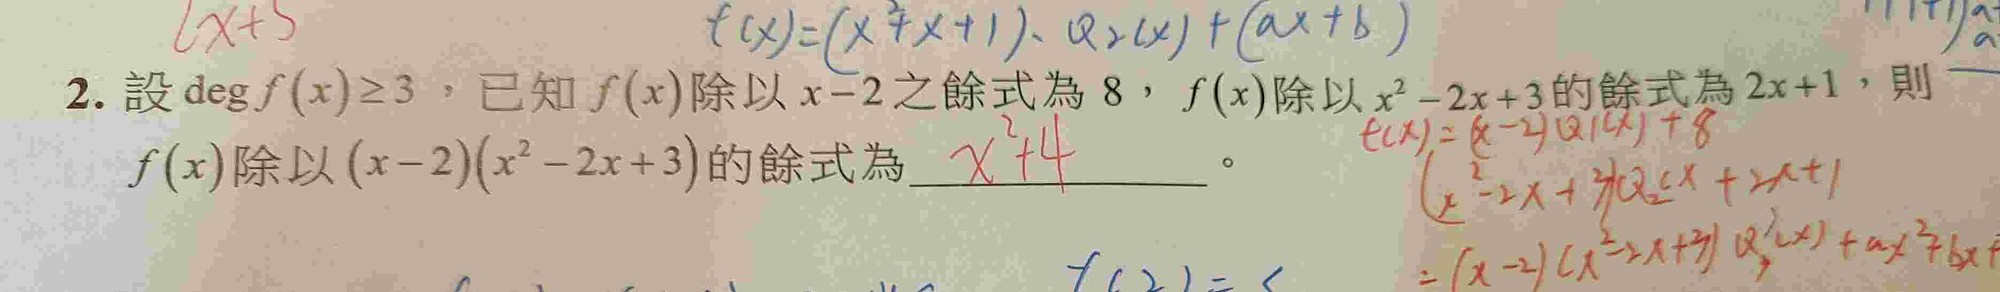 f(x)=(x²+x+1)、Q₂(x)+(ax+b)
2. 設 deg f(x)≥3，已知 f(x)除以 x−2 之餘式為 8，f(x)除以 x²−2x+3的餘式為 2x+1，則
f(x)除以 (x−2)(x²−2x+3)的餘式為 x²+4 。
f(x)=(x-2)Q1(x)+8
(x²-2x+3)Q₂(x+2x+1
=(x-2)(x²-2x+3)Q₃(x)+ax²+bx+